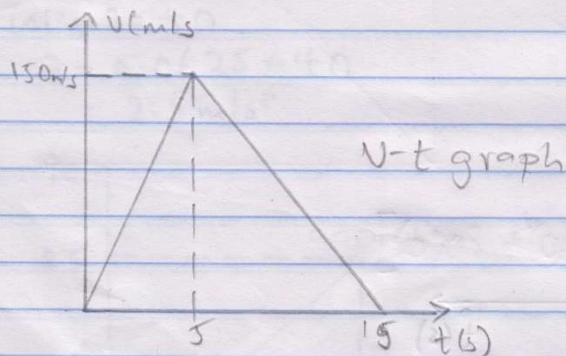 V(m/s
150m/s
V-t graph
5
15
t(s)